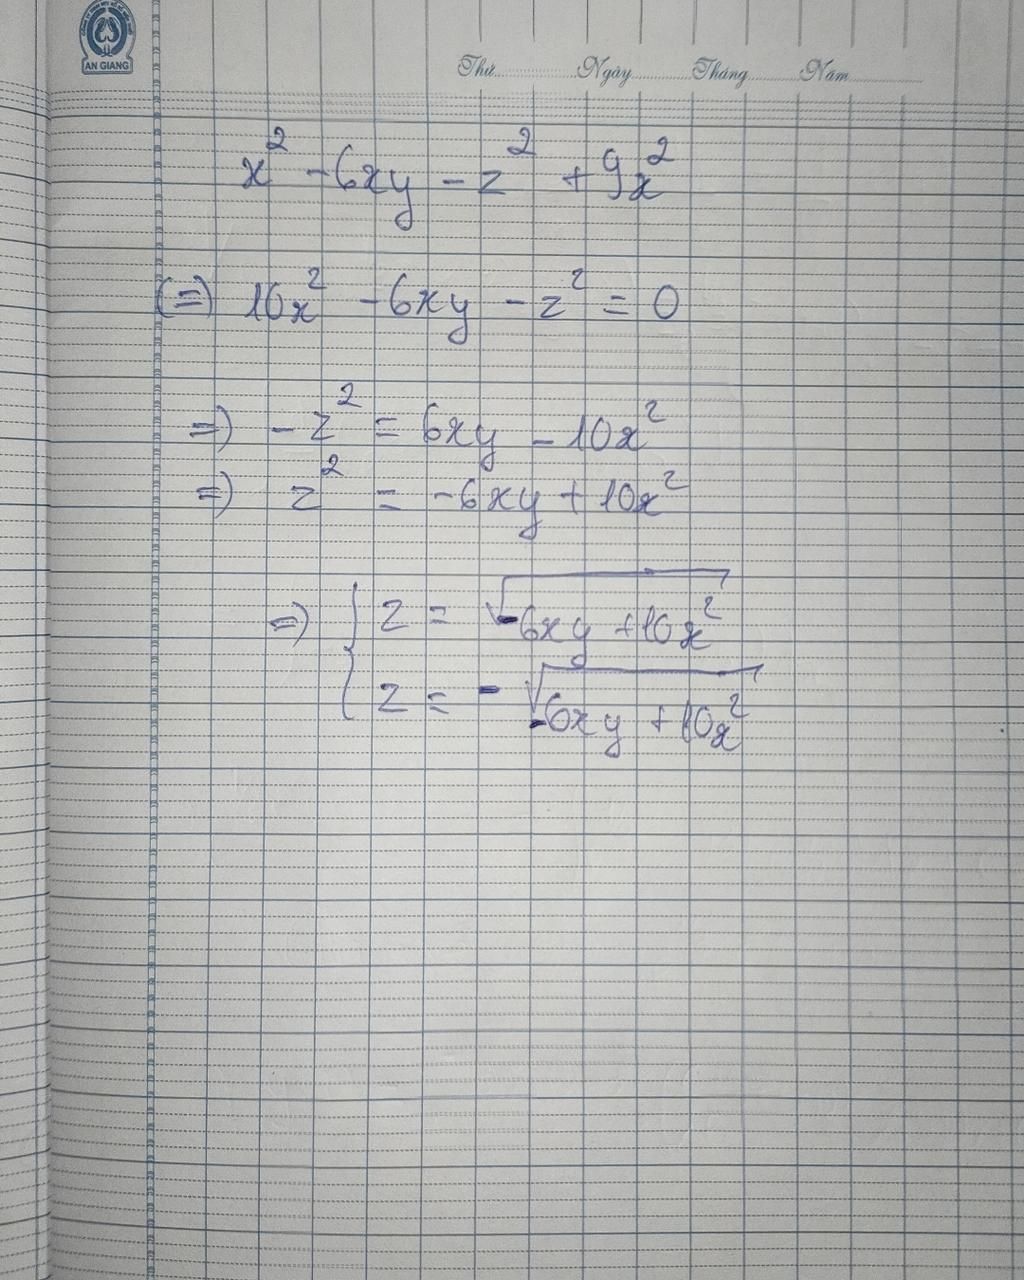 AN GIANG
Thứ Ngày Tháng Năm
x² - 6xy - z² + 9x²
(=) 10x² - 6xy - z² = 0
=) - z² = 6xy - 10x²
=) z² = -6xy + 10x²
=) { z = √-6xy + 10x²
z = - √-6xy + 10x²